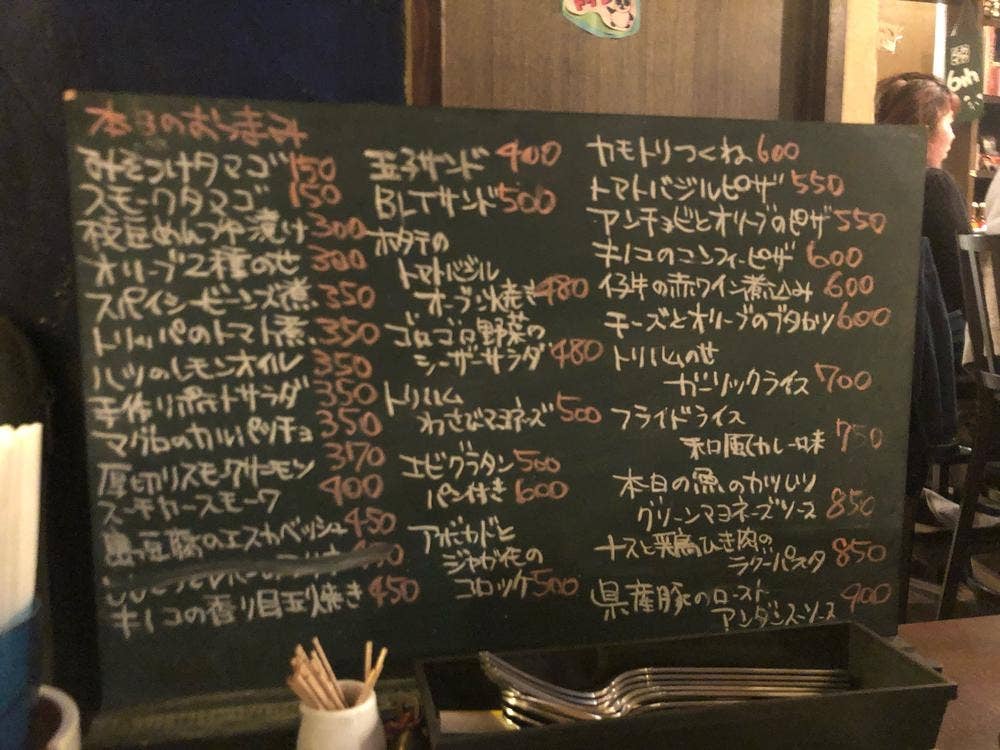 本日のおつまみ
みそつけタマゴ 150
スモークタマゴ 150
枝豆めんつゆ漬け 300
オリーブ2種のせ 300
スパイシービーンズ煮 350
トリッパのトマト煮 350
ハツのレモンオイル 350
手作りポテトサラダ 350
マグロのカルパッチョ 350
厚切りスモークサーモン 370
スーチャースモーク 400
島豆腐のエスカベッシュ 450
キノコの香り目玉焼き 450
玉子サンド 400
BLTサンド 500
ホタテの
トマトバジル
オーブン焼き 480
ゴロゴロ野菜の
シーザーサラダ 480
トリハム
わさびマヨネーズ 500
エビグラタン 500
パン付き 600
アボカドと
ジャガイモの
コロッケ 500
カモトリつくね 600
トマトバジルピザ 550
アンチョビとオリーブのピザ 550
キノコのコンフィーピザ 600
仔牛の赤ワイン煮込み 600
チーズとオリーブのブタカツ 600
トリハムのせ
ガーリックライス 700
フライドライス
和風カレー味 750
本日の魚のカツレツ
グリーンマヨネーズソース 850
ナスと鶏ひき肉の
ラグーパスタ 850
県産豚のロースト
アンダンスーソース 900